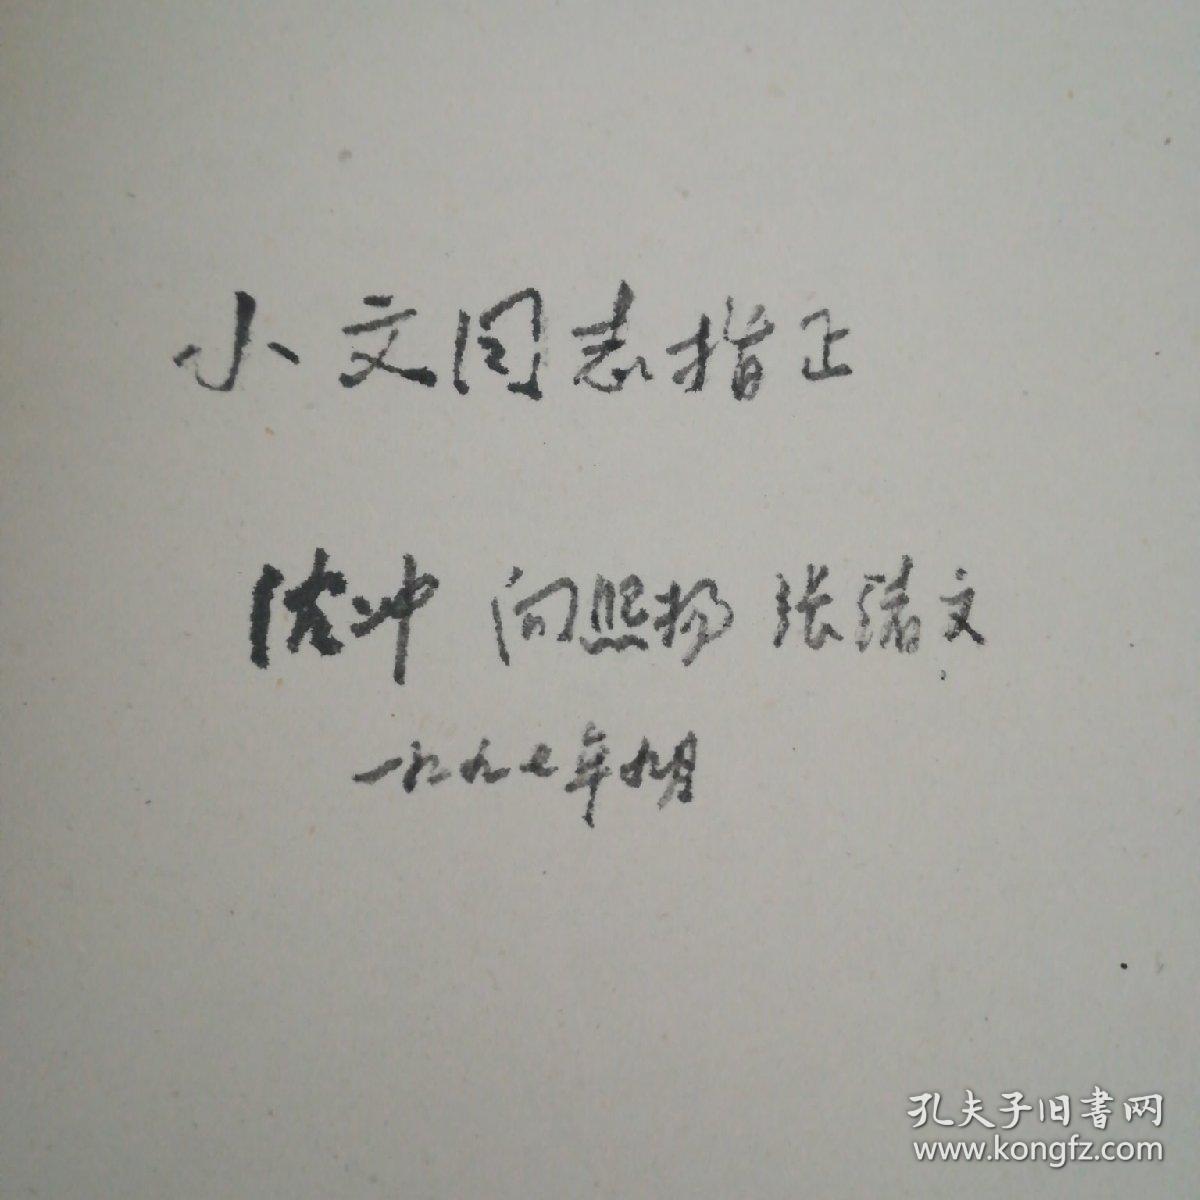 小文同志指正
冲 向熙扬 张绪文
一九九七年九月
孔夫子旧書网
www.kongfz.com